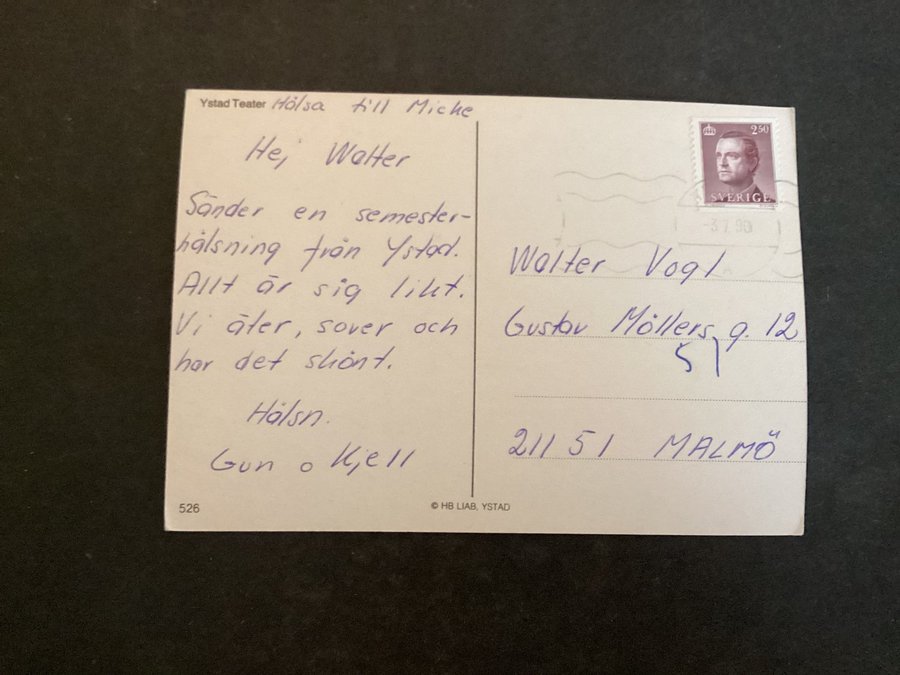 Ystad Teater Hälsa till Micke
Hej Walter
Sänder en semester-
hälsning från Ystad.
Allt är sig likt.
Vi äter, sover och
har det skönt.
Hälsn.
Gun o Kjell
526
© HB LIAB, YSTAD
2.50
SVERIGE
-3.7.90
Walter Vogl
Gustav Möllers g. 12
51
211 51 MALMÖ